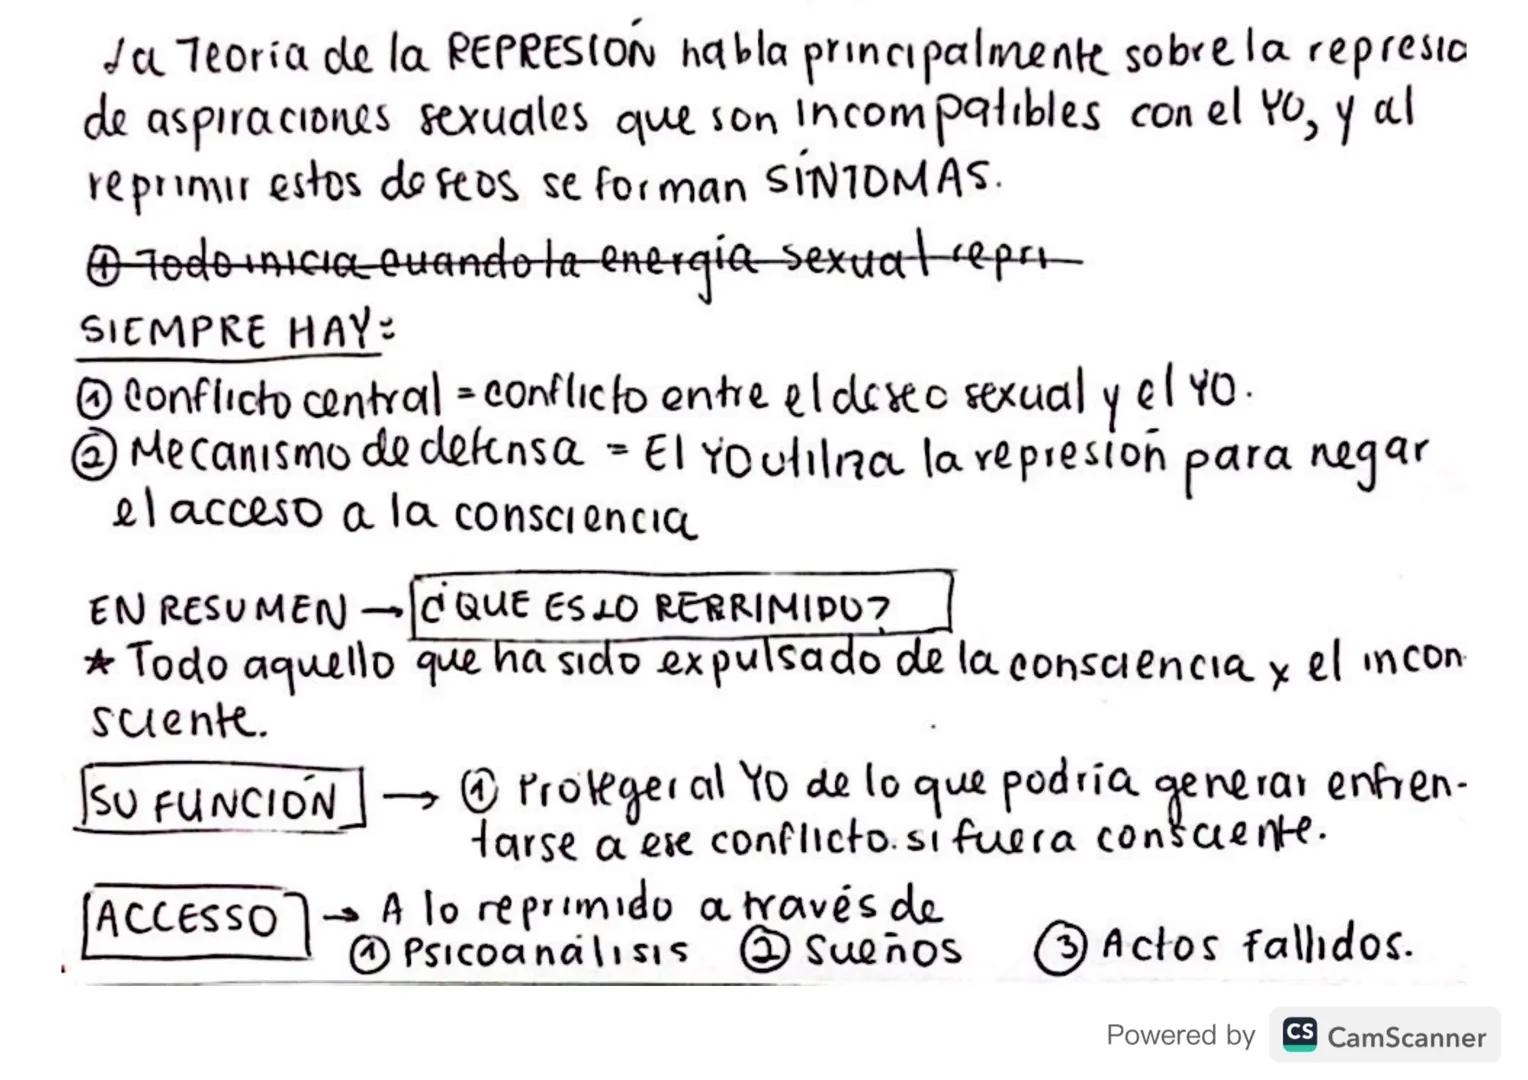 La Teoría de la REPRESIÓN habla principalmente sobre la represio
de aspiraciones sexuales que son incompatibles con el YO, y al
reprimir estos deseos se forman SÍNTOMAS.
① Todo inicia cuando la energía sexual repri
SIEMPRE HAY:
① Conflicto central = conflicto entre el deseo sexual y el YO.
② Mecanismo de defensa = El YO utiliza la represión para negar
el acceso a la consciencia
EN RESUMEN → ¿QUE ES LO RERRIMIDO?
* Todo aquello que ha sido expulsado de la consciencia x el incon-
sciente.
SU FUNCIÓN → ① Proteger al YO de lo que podría generar enfren-
tarse a ese conflicto. si fuera consciente.
ACCESSO → A lo reprimido a través de
① Psicoanálisis ② Sueños ③ Actos fallidos.
Powered by CS CamScanner